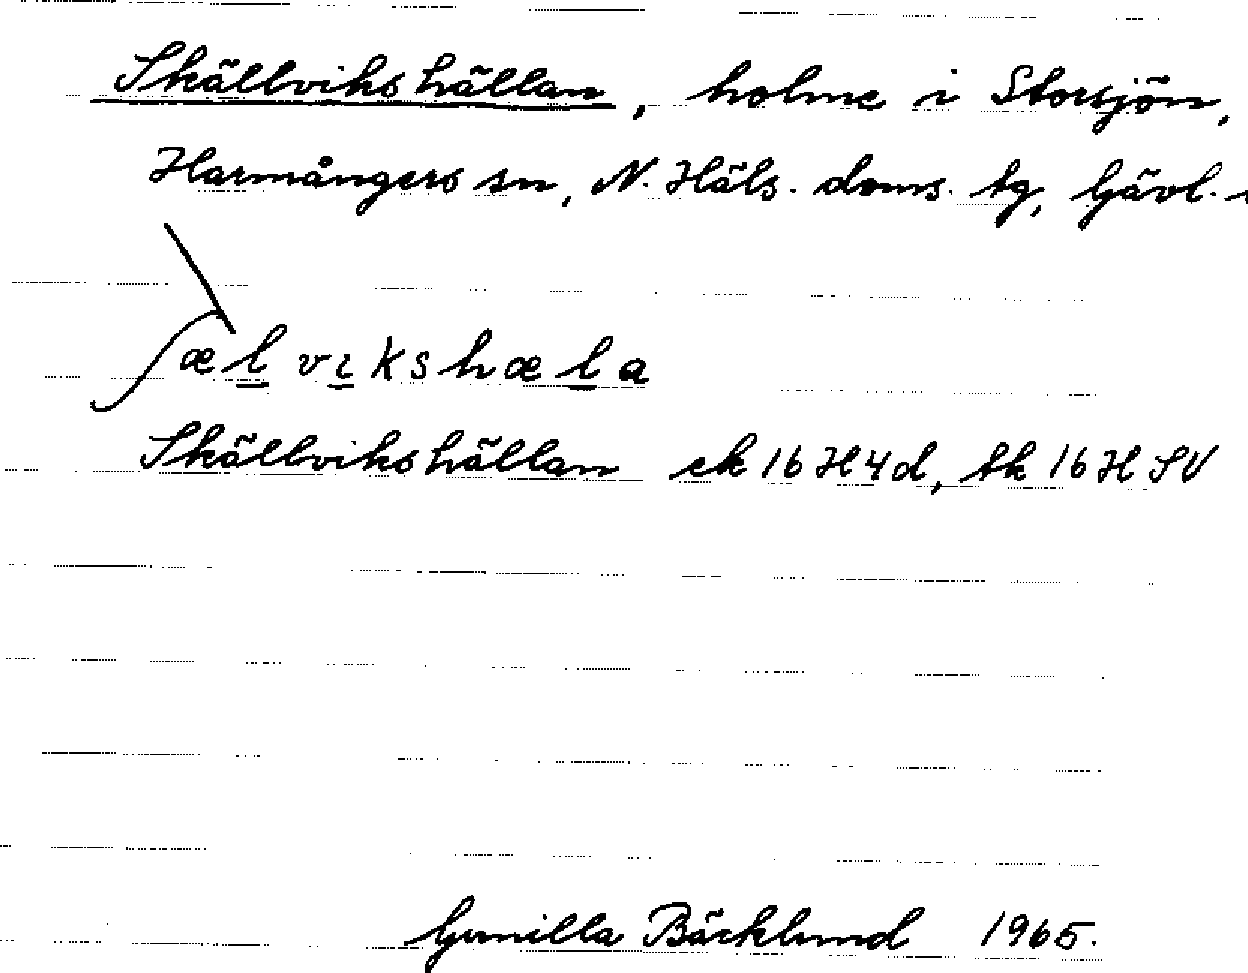 Skällvikshällan, holme i Storsjön,
Harmångers sn, N. Häls. doms. tg, Gävl.
ʃælvɩkshæla
Skällvikshällan ek 16H4d, tk 16H SV
Gunilla Bäcklund 1965.